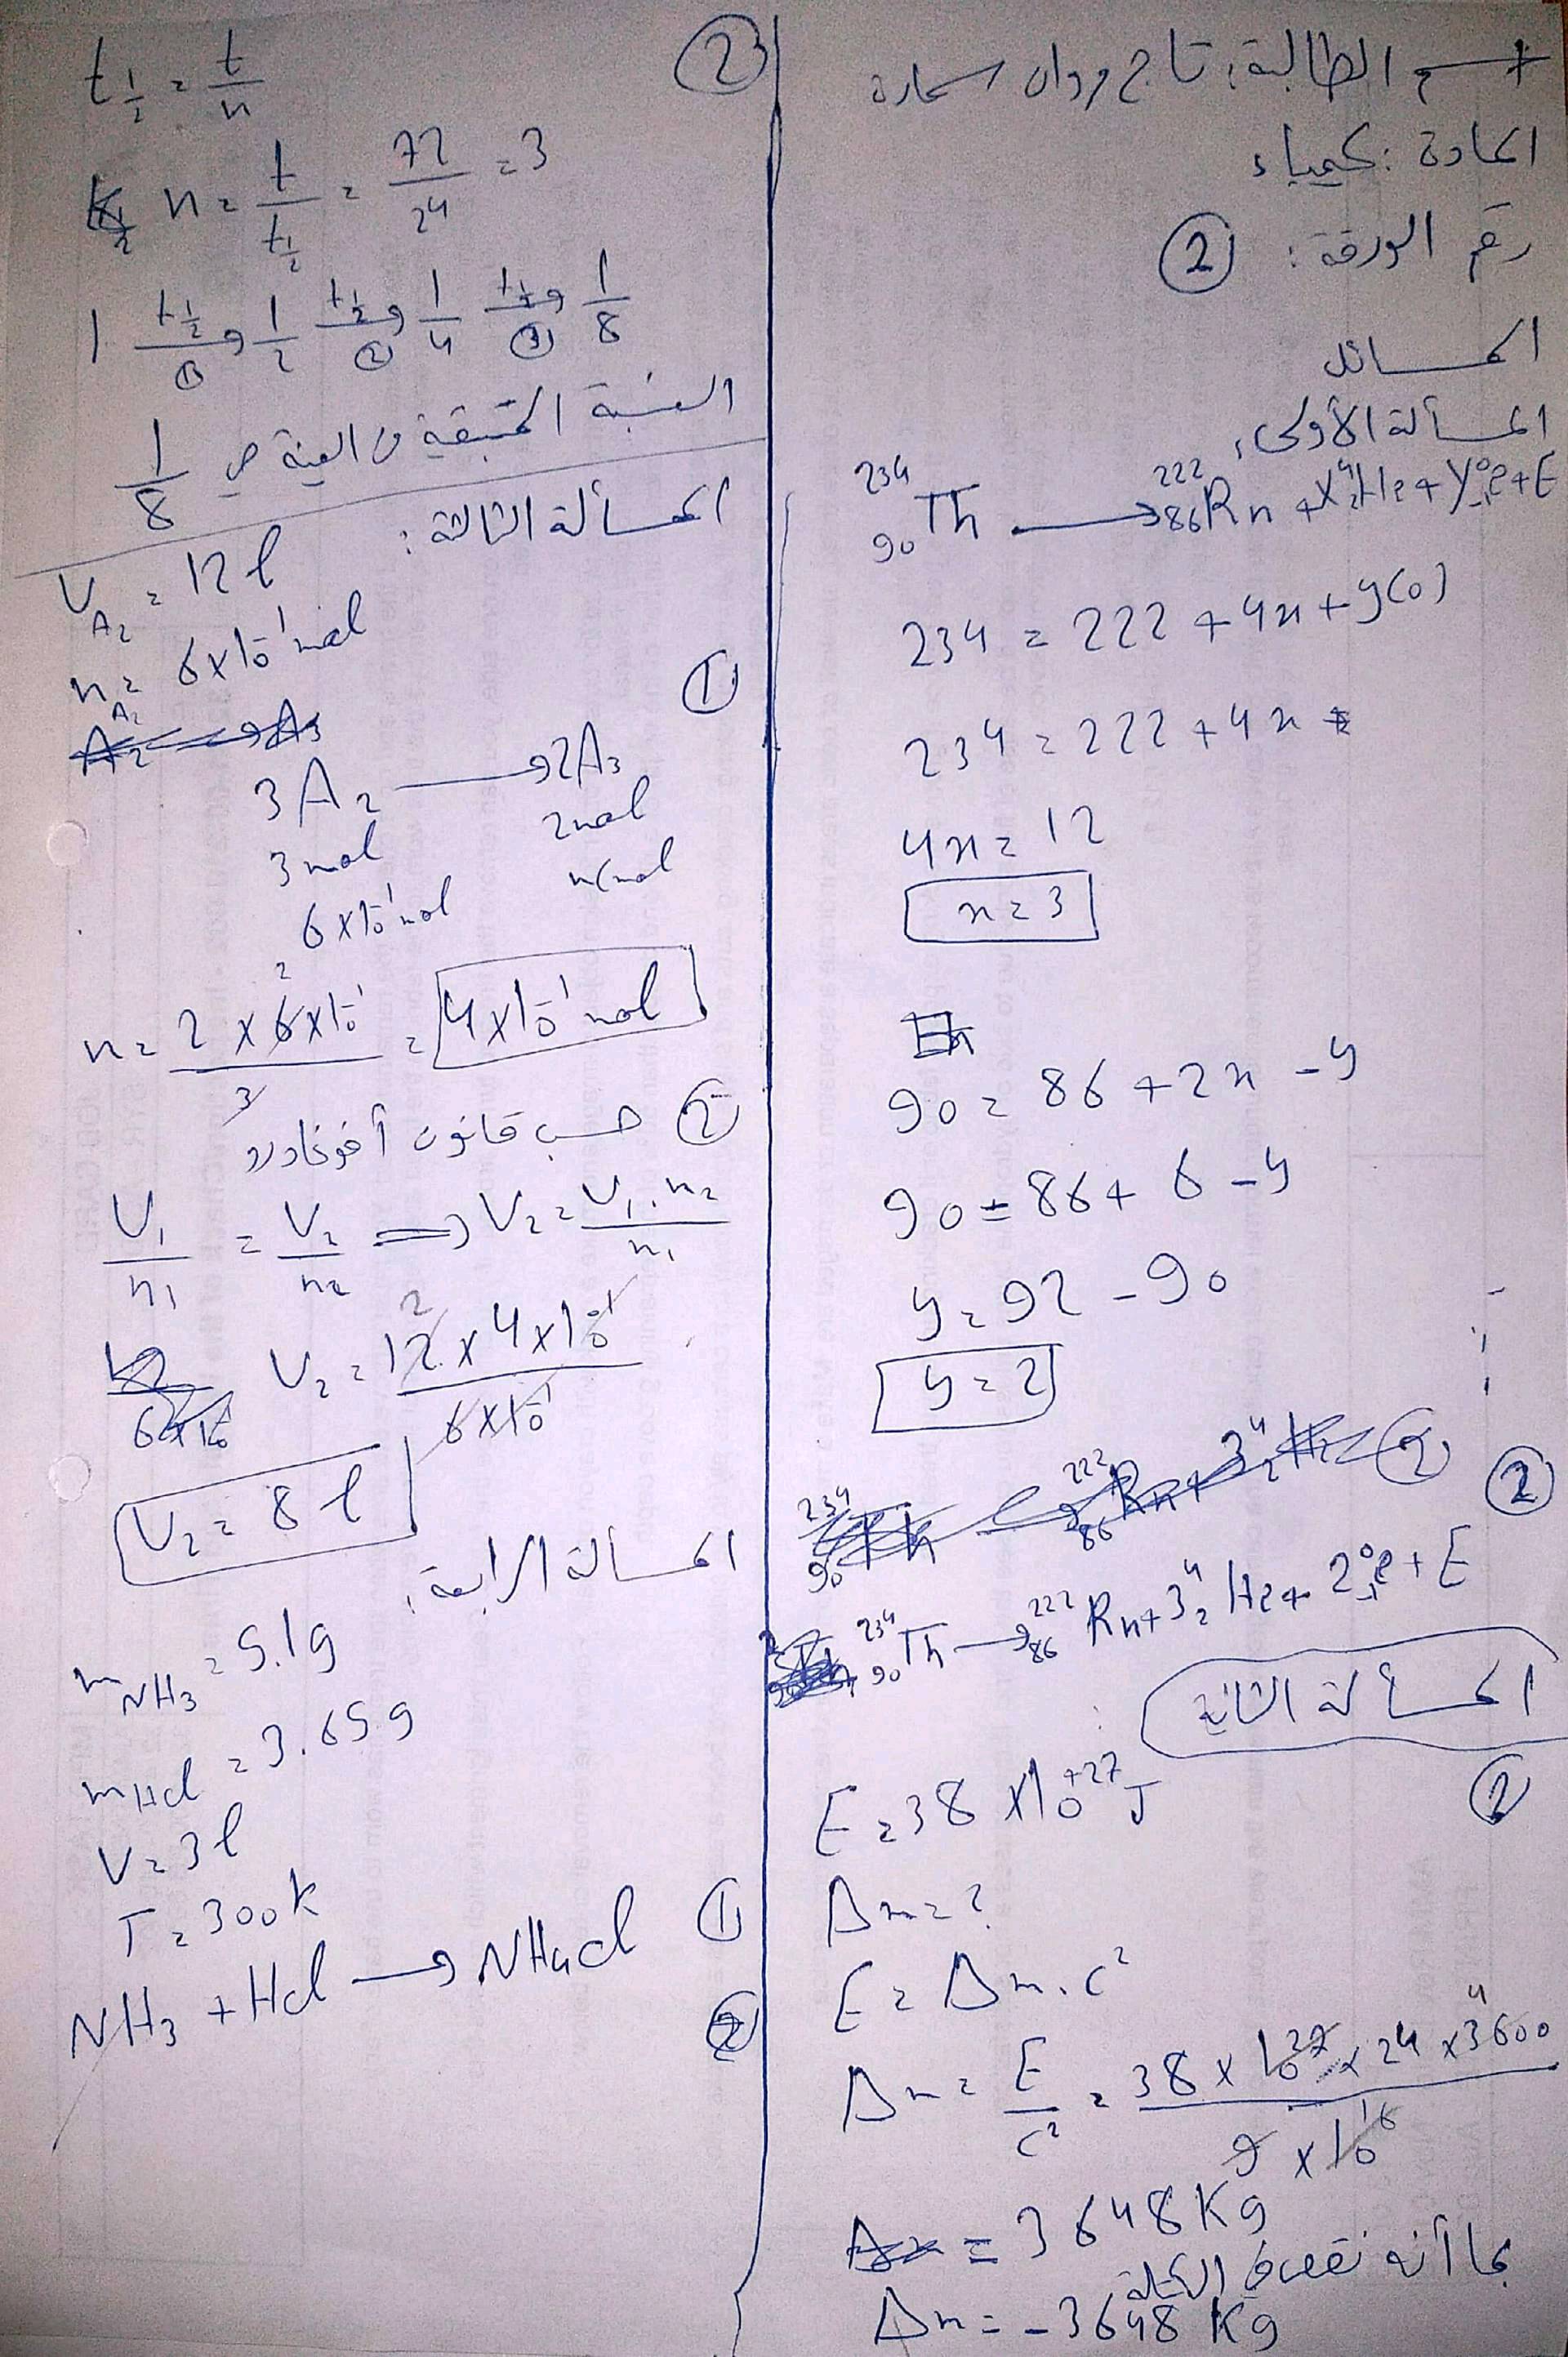 اسم الطالبة: تاج مروان سمارة
المادة: كيمياء
رقم الورقة: ②
المسائل
المسألة الأولى:
²³⁴₉₀Th → ²²²₈₆Rn + X⁴₂He + Y⁰₋₁e + E
234 = 222 + 4x + y(0)
234 = 222 + 4x
4x = 12
x = 3
90 = 86 + 2x - y
90 = 86 + 6 - y
y = 92 - 90
y = 2
②
²³⁴₉₀Th → ²²²₈₆Rn + 3⁴₂He + 2⁰₋₁e + E
المسألة الثانية
②
E = 38 × 10⁺²⁷ J
Δm = ?
E = Δm . c²
Δm = E / c² = 38 × 10²⁷ × 24 × 3600 / 9 × 10¹⁶
= 3648 Kg
بما أنه نقص في الكتلة
Δm = -3648 Kg
②
t½ = t / n
n = t / t½ = 72 / 24 = 3
1 t½→① 1/2 t½→② 1/4 t½→③ 1/8
النسبة المتبقية من العينة هي 1/8
المسألة الثالثة:
V_A₂ = 12 l
n_A₂ = 6 × 10⁻¹ mol
①
3A₂ → 2A₃
3 mol 2 mol
6 × 10⁻¹ mol n mol
n = 2 × 6 × 10⁻¹ / 3 = 4 × 10⁻¹ mol
② حسب قانون أفوغادرو
V₁ / n₁ = V₂ / n₂ ⇒ V₂ = V₁ . n₂ / n₁
V₂ = 12 × 4 × 10⁻¹ / 6 × 10⁻¹
V₂ = 8 l
المسألة الرابعة:
m NH₃ = 5.1 g
m Hcl = 3.65 g
V = 3 l
T = 300 k
① NH₃ + Hcl → NH₄cl
②